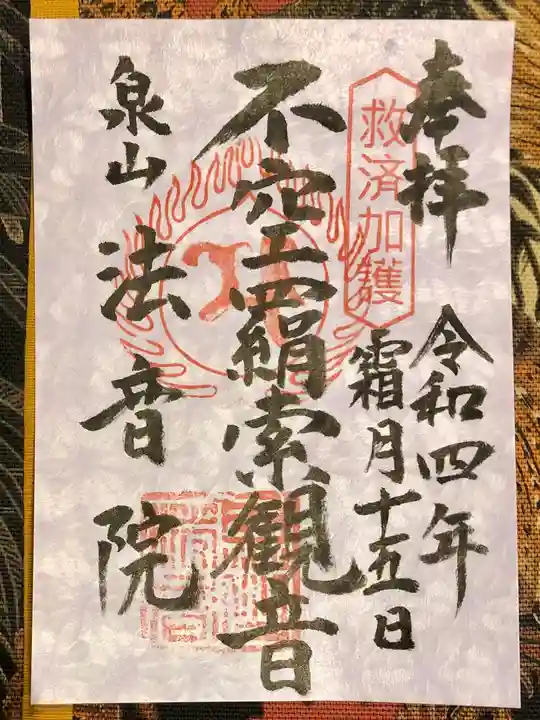 奉拝
救済加護
令和四年
霜月十五日
不空羂索観音
泉山
法音院